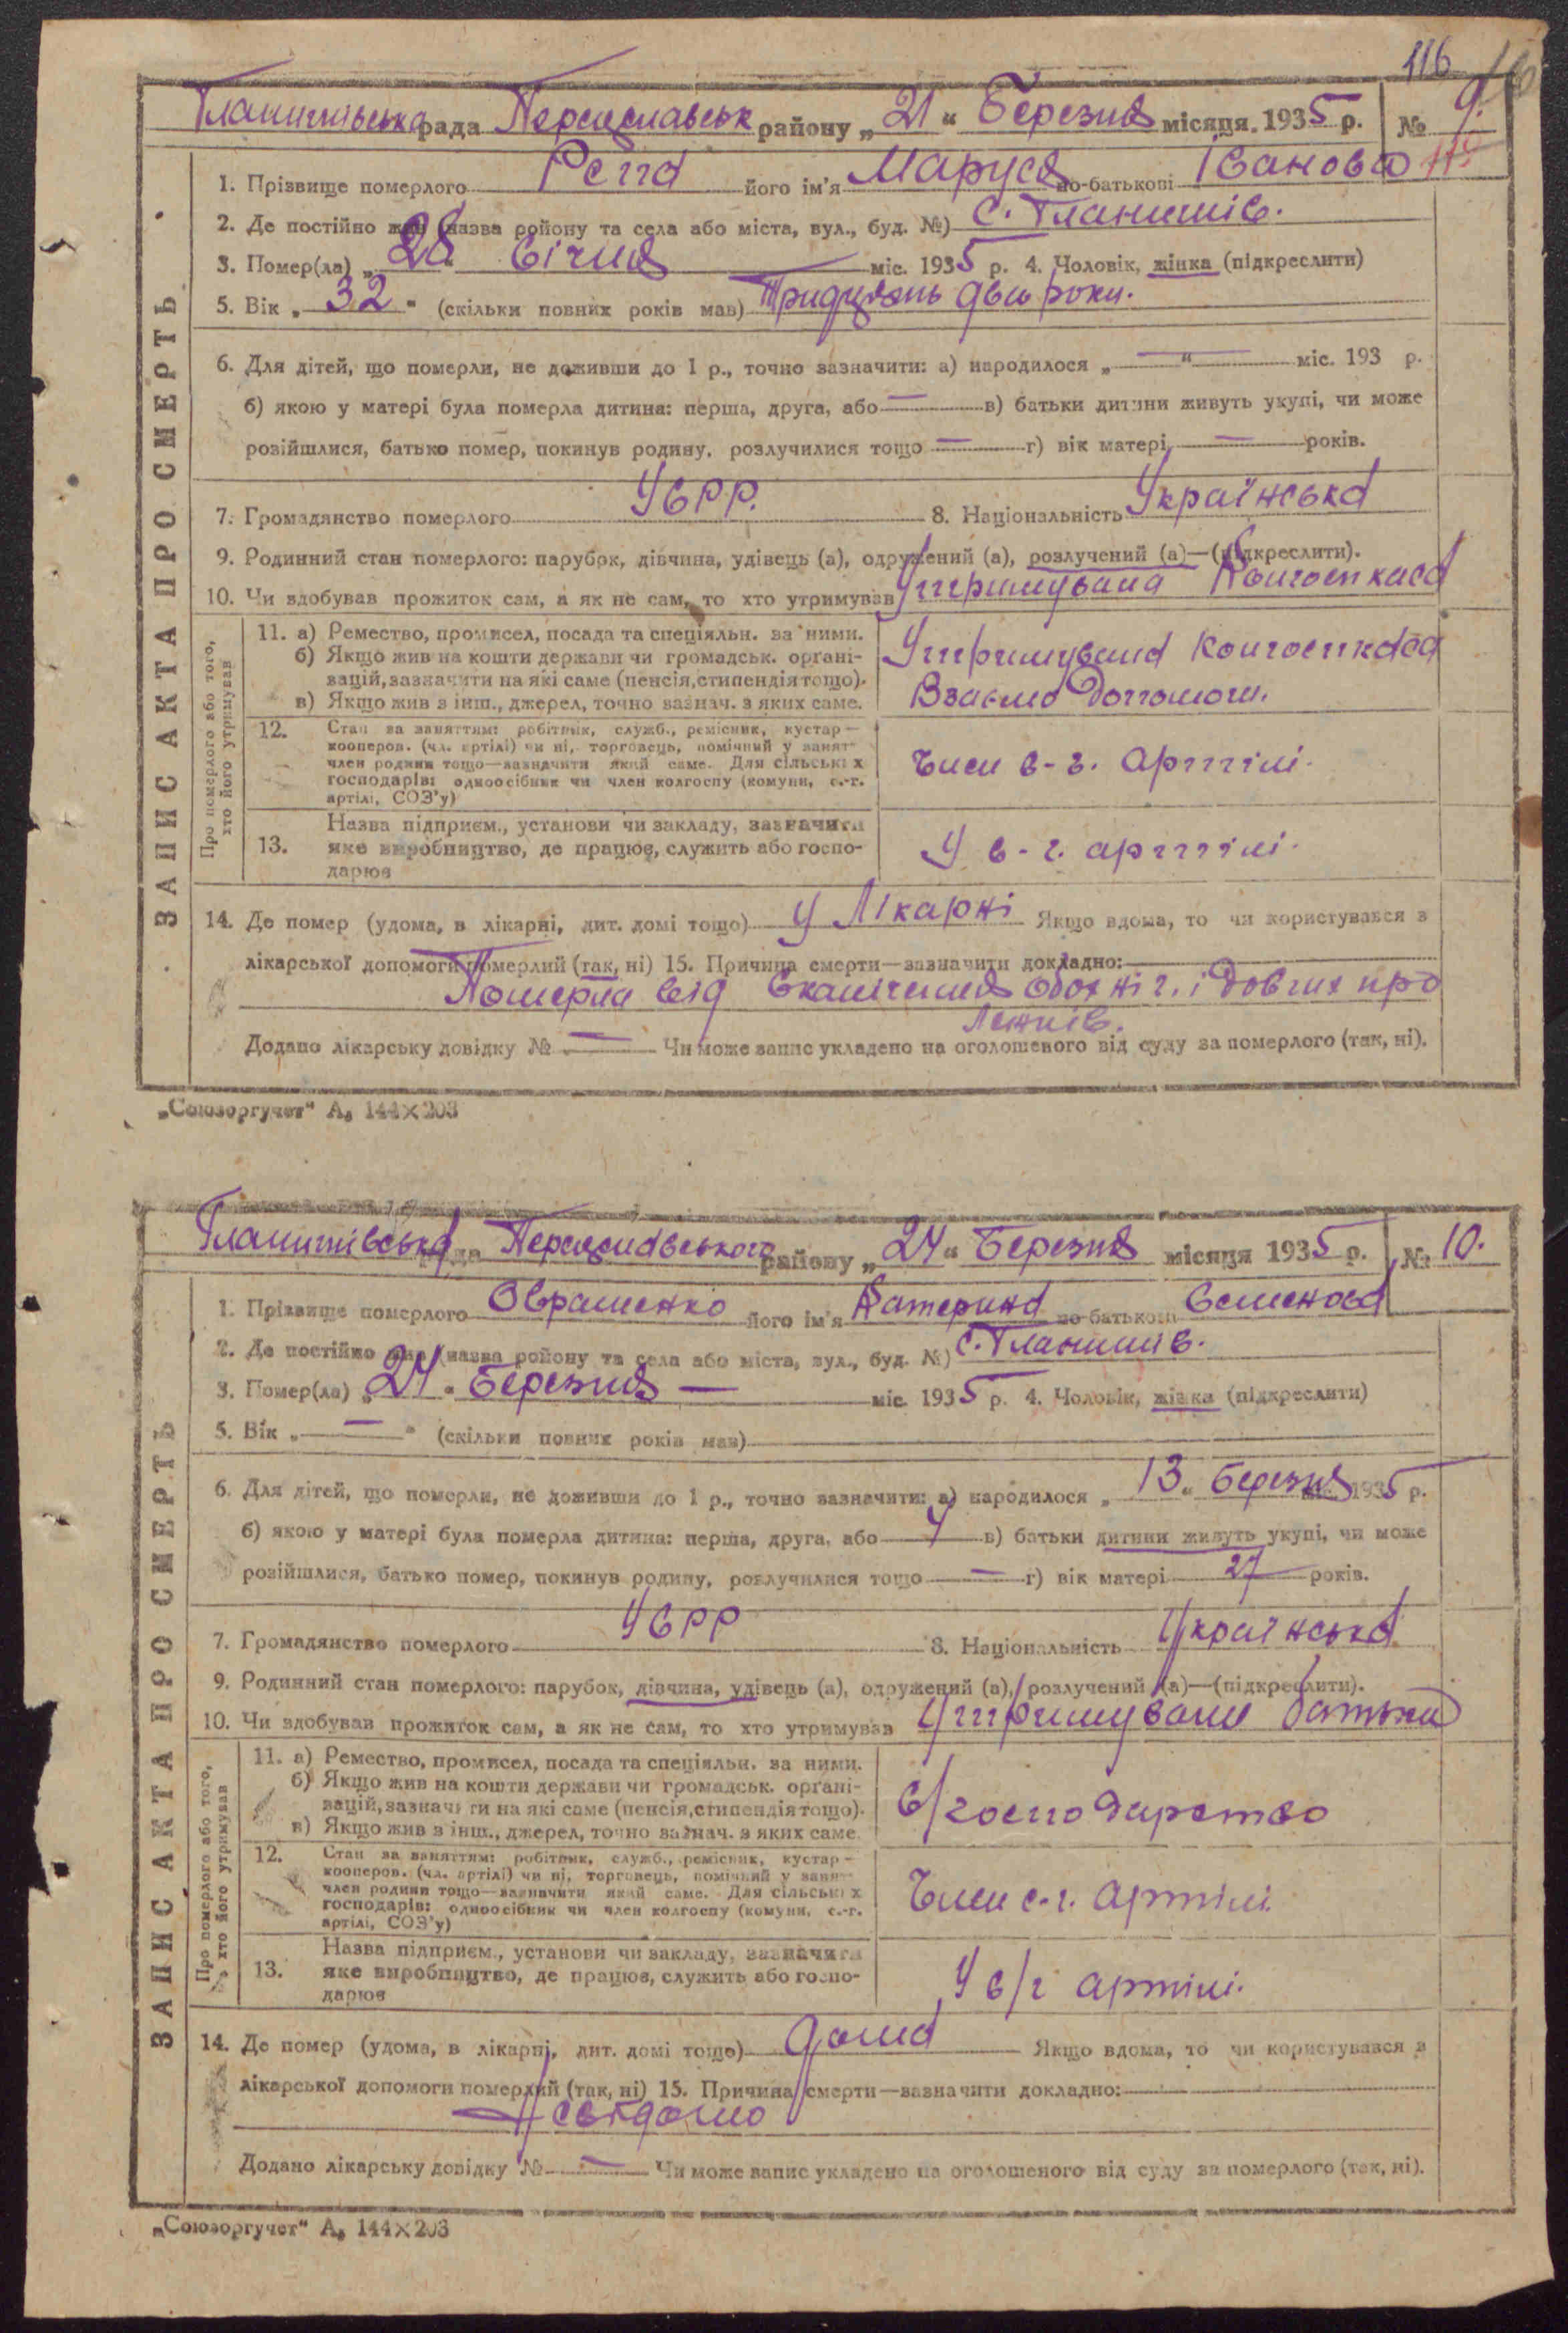 116
Гланишівська рада Переяславськ району „21“ Березня місяця. 1935 р. № 9.
1. Прізвище померлого Репа його ім'я Маруся по-батькові Іванова
2. Де постійно жив (назва району та села або міста, вул., буд. №) с. Гланишів.
3. Помер(ла) „28 Січня міс. 1935 р. 4. Чоловік, жінка (підкреслити)
5. Вік „32“ (скільки повних років мав) Тридцять два роки.
6. Для дітей, що померли, не доживши до 1 р., точно зазначити: а) народилося „—“— міс. 193 р.
б) якою у матері була померла дитина: перша, друга, або — в) батьки дитини живуть укупі, чи може
розійшлися, батько помер, покинув родину, розлучилися тощо — г) вік матері — років.
7. Громадянство померлого УСРР. 8. Національність Українська
9. Родинний стан померлого: парубок, дівчина, удівець (а), одружений (а), розлучений (а)—(підкреслити).
10. Чи здобував прожиток сам, а як не сам, то хто утримував Утримувала
ЗАПИС АКТА ПРО СМЕРТЬ
Про померлого або того,
хто його утримував
11. а) Ремество, промисел, посада та спеціяльн. за ними.
б) Якщо жив на кошти держави чи громадськ. органі-
зацій, зазначити на які саме (пенсія, стипендія тощо).
в) Якщо жив з інш., джерел, точно зазнач. з яких саме.
Утримувала
Взаємо Допомоги.
12. Стан за заняттям: робітник, служб., ремісник, кустар—
кооперов. (чл. артілі) чи ні, торговець, помічний у занят-
член родини тощо—зазначити який саме. Для сільських
господарів: одноосібник чи член колгоспу (комуни, с.-г.
артілі, СОЗ'у)
Член с-г. Артілі.
13. Назва підприєм., установи чи закладу, зазначити
яке виробництво, де працює, служить або госпо-
дарює
У с-г. артілі.
14. Де помер (удома, в лікарні, дит. домі тощо) У Лікарні Якщо вдома, то чи користувався з
лікарської допомоги померлий (так, ні) 15. Причина смерти—зазначити докладно:
Померла від Скалічення обох ніг. і Довгих про
Лежнів.
Додано лікарську довідку № — Чи може запис укладено на оголошеного від суду за померлого (так, ні).
„Союзоргучет“ А₅ 144×203
Гланишівська рада Переяславського району „24“ Березня місяця 1935 р. № 10.
1. Прізвище померлого Овраменко його ім'я Катерина по-батькові Семенова
2. Де постійно жив (назва району та села або міста, вул., буд. №) с. Гланишів.
3. Помер(ла) „24“ Березня — міс. 1935 р. 4. Чоловік, жінка (підкреслити)
5. Вік „—“ (скільки повних років мав)
6. Для дітей, що померли, не доживши до 1 р., точно зазначити: а) народилося „13“ Березня міс. 1935 р.
б) якою у матері була померла дитина: перша, друга, або 4 в) батьки дитини живуть укупі, чи може
розійшлися, батько помер, покинув родину, розлучилися тощо — г) вік матері 27 років.
7. Громадянство померлого УСРР 8. Національність Українська
9. Родинний стан померлого: парубок, дівчина, удівець (а), одружений (а), розлучений (а)—(підкреслити).
10. Чи здобував прожиток сам, а як не сам, то хто утримував Утримували батьки
ЗАПИС АКТА ПРО СМЕРТЬ
Про померлого або того,
хто його утримував
11. а) Ремество, промисел, посада та спеціяльн. за ними.
б) Якщо жив на кошти держави чи громадськ. органі-
зацій, зазначити на які саме (пенсія, стипендія тощо).
в) Якщо жив з інш., джерел, точно зазнач. з яких саме
С/господарство
12. Стан за заняттям: робітник, служб., ремісник, кустар—
кооперов. (чл. артілі) чи ні, торговець, помічний у занят-
член родини тощо—зазначити який саме. Для сільських
господарів: одноосібник чи член колгоспу (комуни, с.-г.
артілі, СОЗ'у)
Член с-г. Артілі.
13. Назва підприєм., установи чи закладу, зазначити
яке виробництво, де працює, служить або госпо-
дарює
У с/г артілі.
14. Де помер (удома, в лікарні, дит. домі тощо) Дома Якщо вдома, то чи користувався з
лікарської допомоги померлий (так, ні) 15. Причина смерти—зазначити докладно:
Невідомо
Додано лікарську довідку № — Чи може запис укладено на оголошеного від суду за померлого (так, ні).
„Союзоргучет“ А₅ 144×203